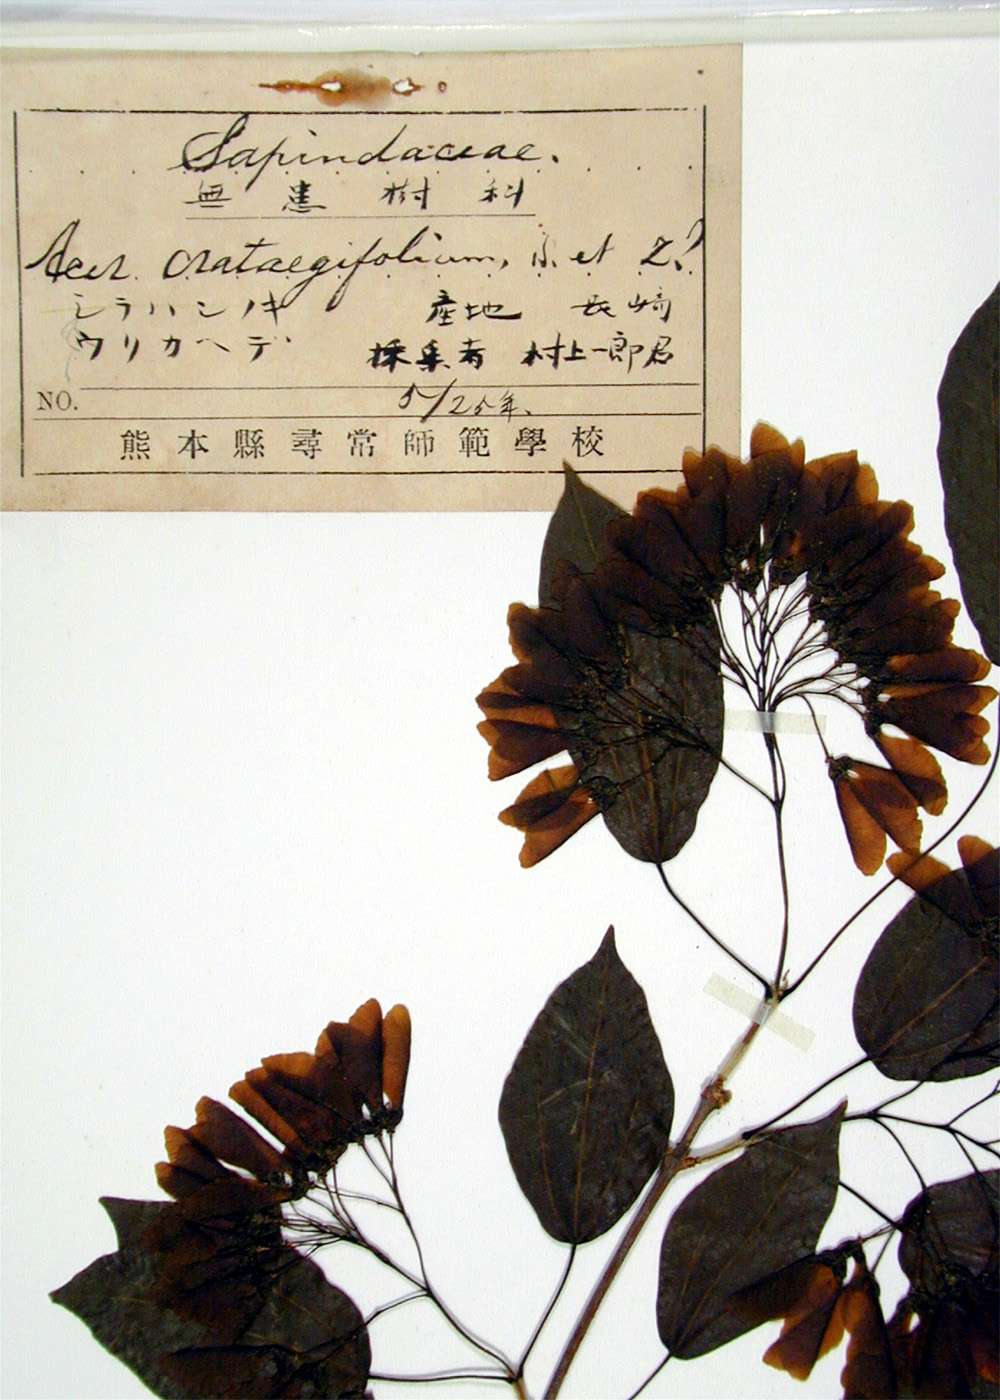 Sapindaceae.
無患樹科
Acer crataegifolium, S. et Z.?
シラハシノキ 産地 長崎
ウリカヘデ 採集者 村上一郎君
NO. 5/25年、
熊本縣尋常師範學校